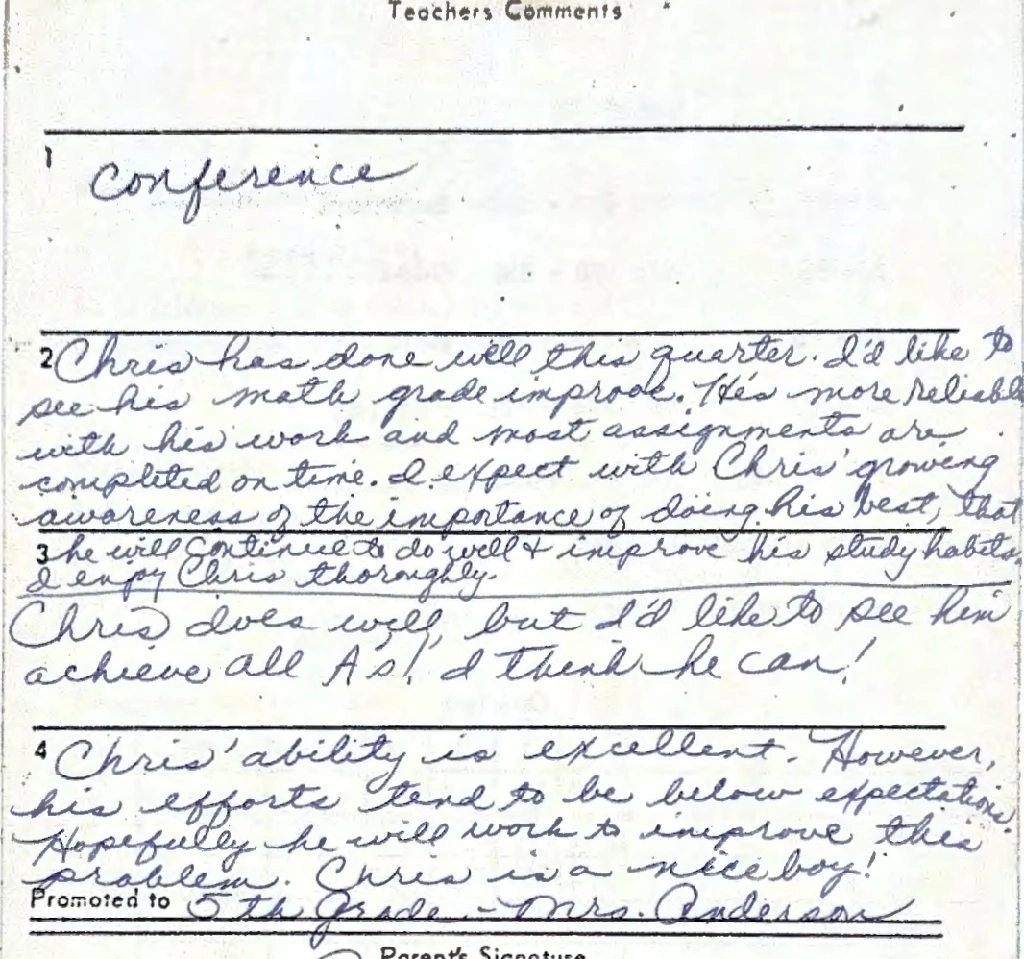 Teachers Comments
1
Conference
2 Chris has done well this quarter. I'd like to
see his math grade improve. He's more reliable
with his work and most assignments are
completed on time. I expect with Chris' growing
awareness of the importance of doing his best, that
3 he will continue to do well & improve his study habits.
I enjoy Chris thoroughly.
Chris does well, but I'd like to see him
achieve all A's! I think he can!
4 Chris' ability is excellent. However,
his efforts tend to be below expectation.
Hopefully he will work to improve this
problem. Chris is a nice boy!
Promoted to 5th Grade - Mrs. Anderson
Parent's Signature